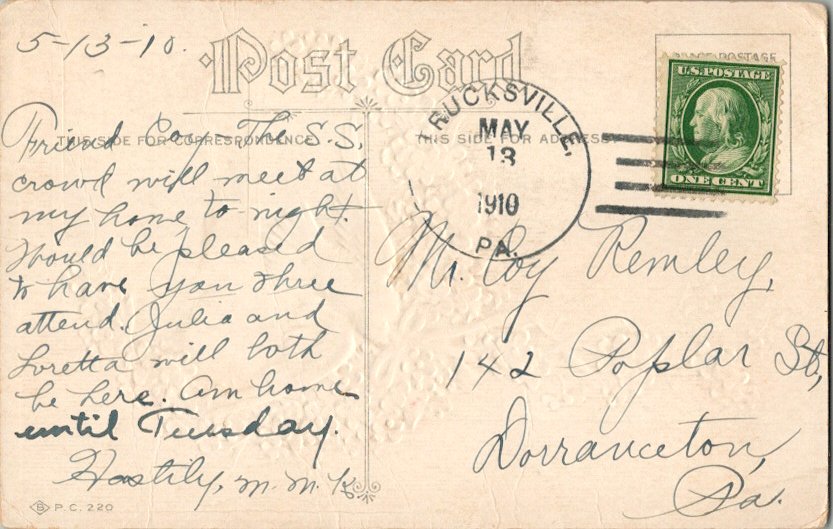 5-13-10.
Post Card
PLACE POSTAGE
U.S. POSTAGE
ONE CENT
RUCKSVILLE,
MAY
13
1910
PA.
THIS SIDE FOR CORRESPONDENCE
THIS SIDE FOR ADDRESS
Friend Coy - The S.S.
crowd will meet at
my home to-night.
Would be pleased
to have you three
attend. Julia and
Loretta will both
be here. Am home
until Tuesday.
Hastily, M. M. K.
Mr. Coy Remley,
142 Poplar St.,
Dorranceton,
Pa.
S P.C. 220